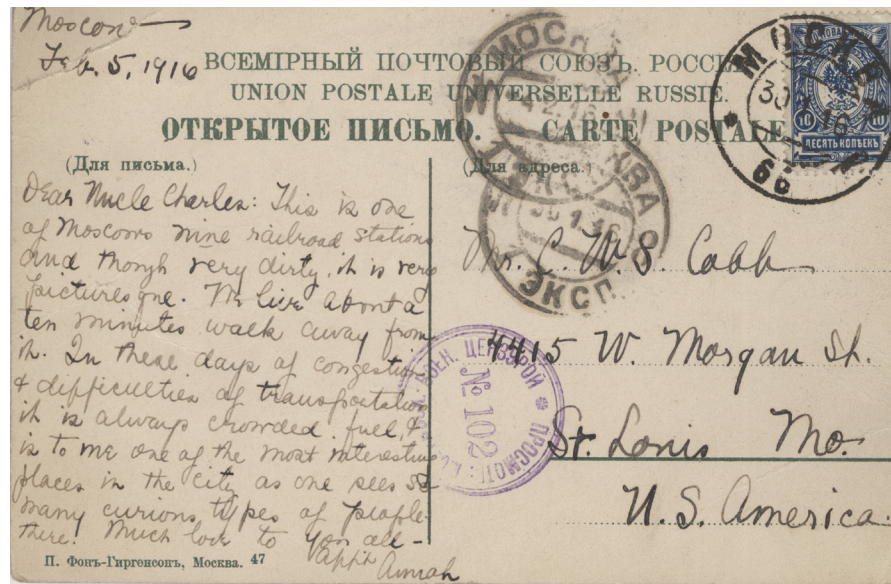 Moscow
Feb. 5, 1916
ВСЕМІРНЫЙ ПОЧТОВЫЙ СОЮЗЪ. РОССІЯ
UNION POSTALE UNIVERSELLE RUSSIE.
ОТКРЫТОЕ ПИСЬМО. CARTE POSTALE
(Для письма.)
Dear Uncle Charles: This is one
of Moscow's nine railroad stations
and though very dirty, it is very
picturesque. We live about a
ten minutes walk away from
it. In these days of congestion
& difficulties of transportation
it is always crowded full, &
is to me one of the most interesting
places in the city as one sees so
many curious types of people
there! Much love to you all -
Annah
П. Фонъ-Гиргенсонъ, Москва. 47
(Для адреса.)
Mr. C. W. S. Cobb
4415 W. Morgan St.
St. Louis Mo.
U.S. America.
МОСКВА
30 1 16
66
10 10
ДЕСЯТЬ КОПѢЕКЪ
МОСКВА
ЭКСП.
30 1 16
ВОЕН. ЦЕНЗУРОЙ
ПРОСМОТ
№ 102